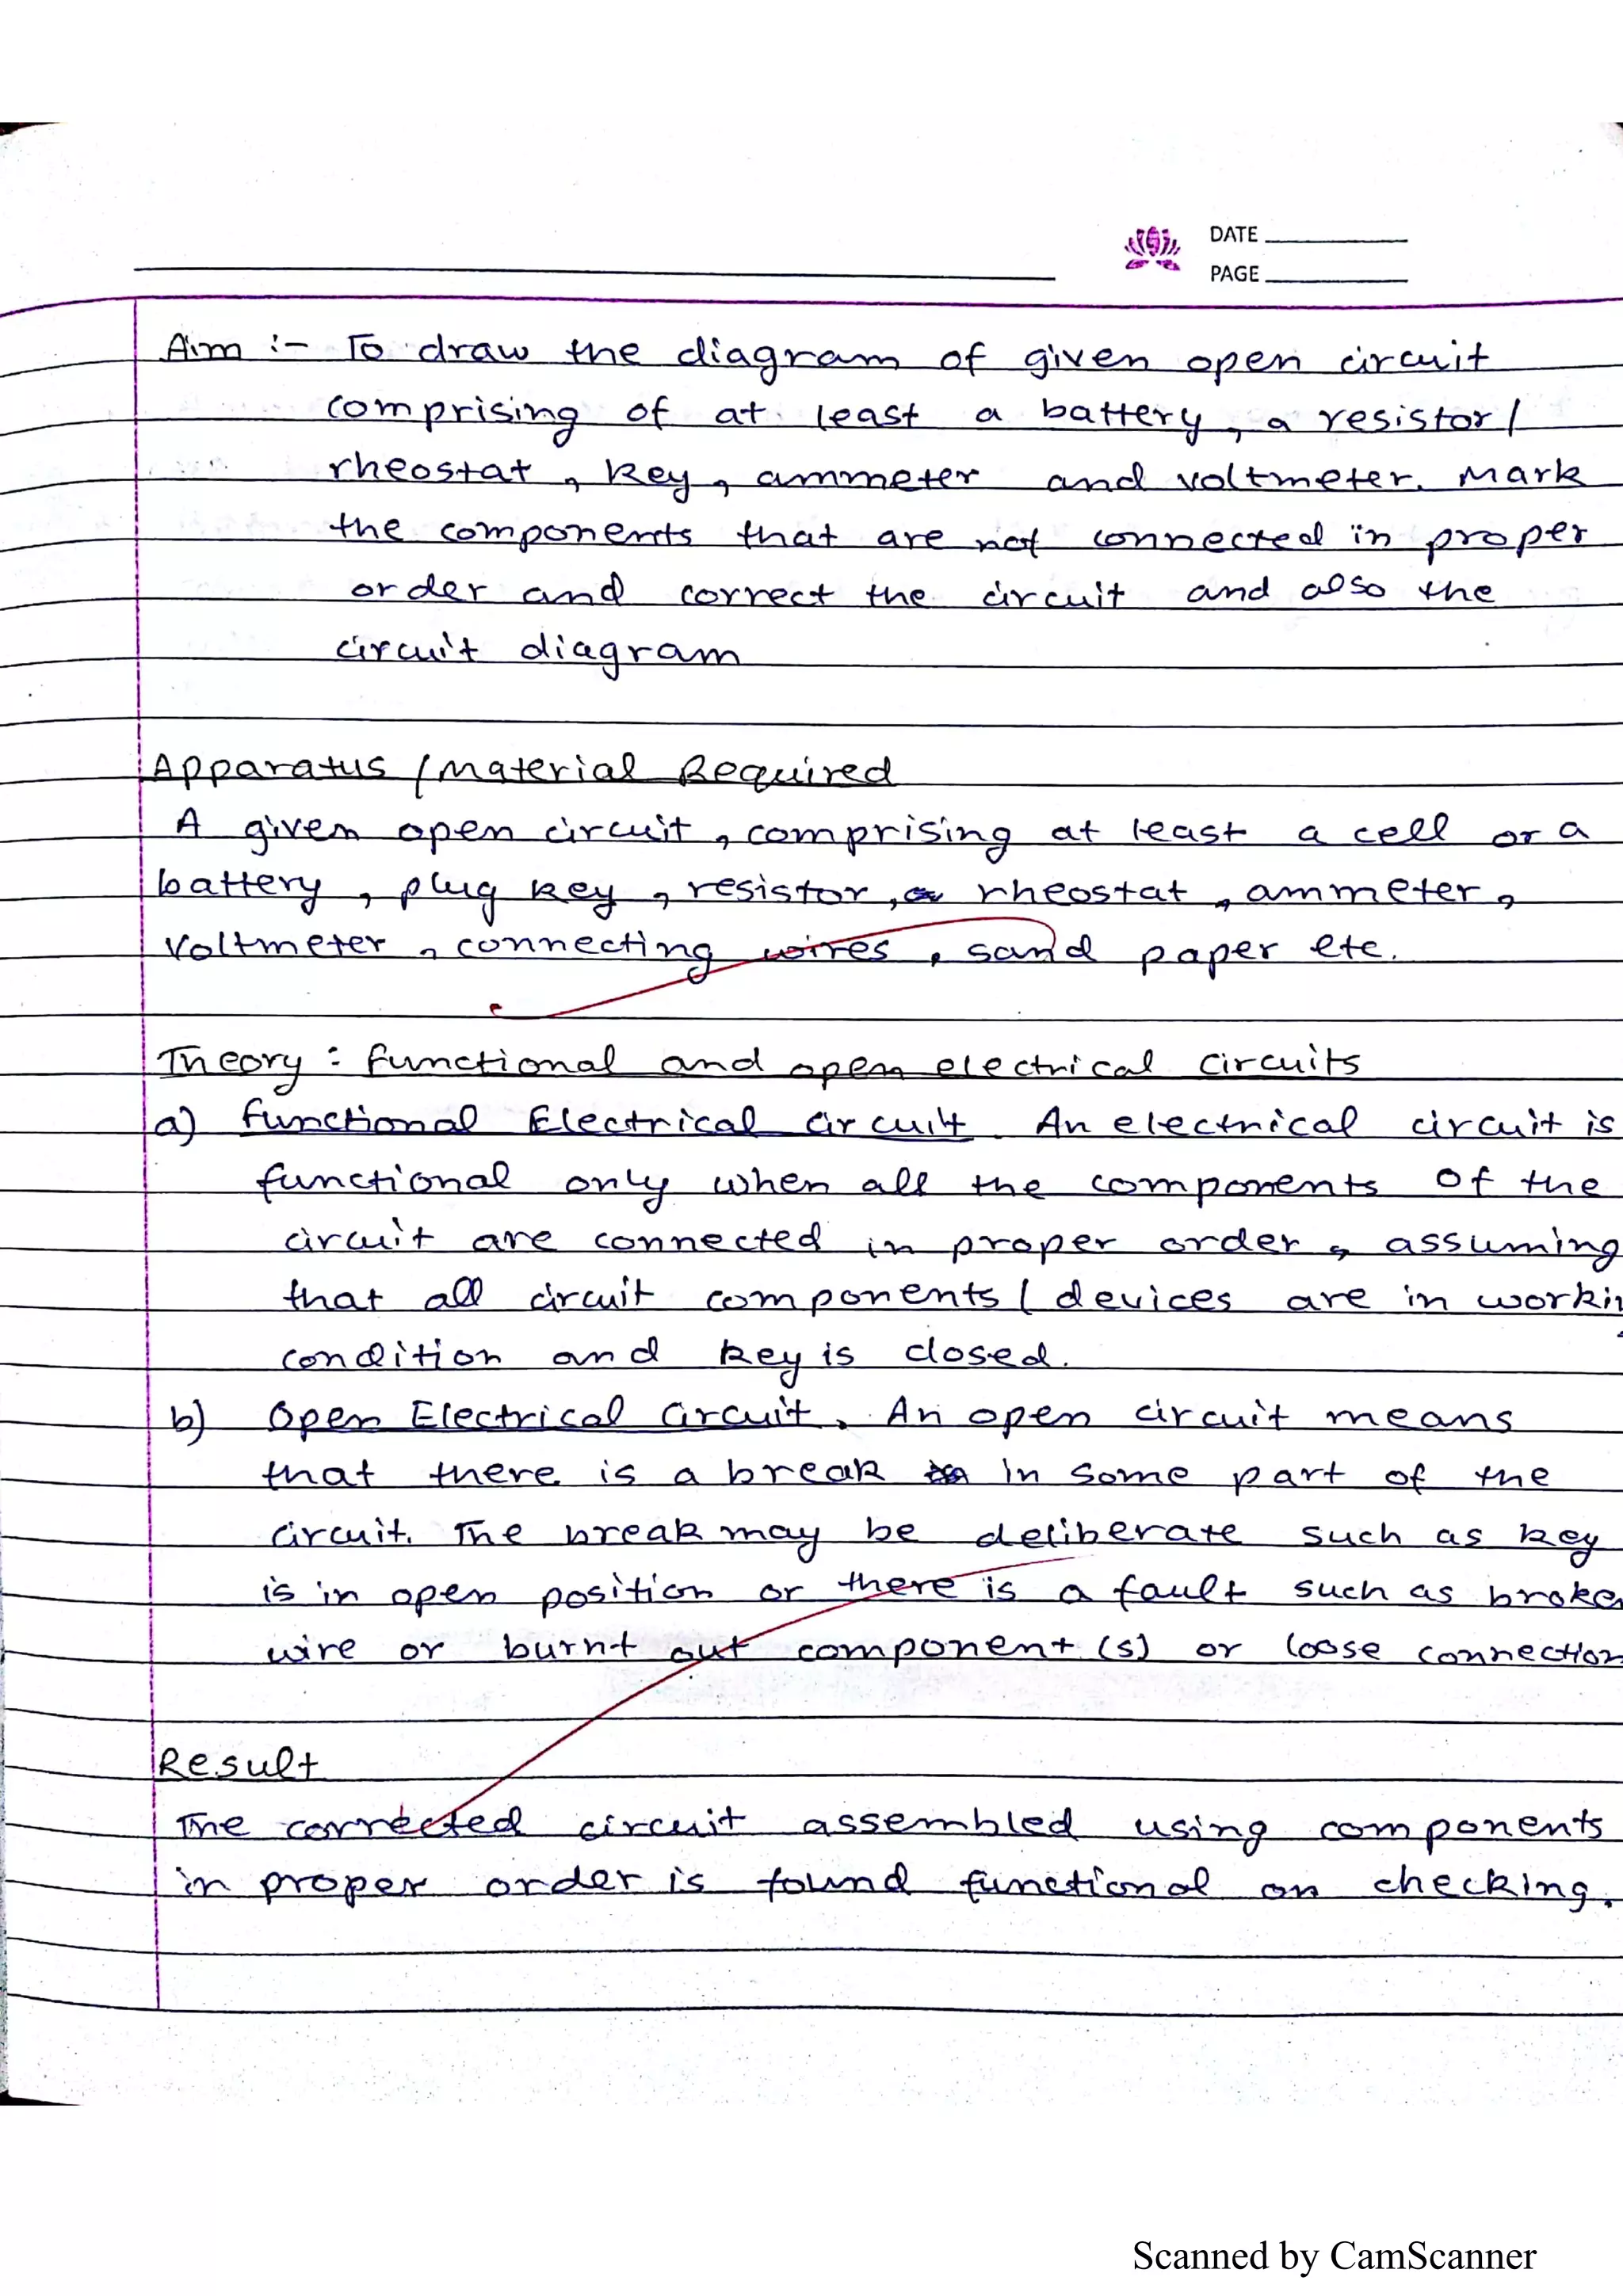 DATE
PAGE
Aim :- To draw the diagram of given open circuit
comprising of at least a battery, a resistor/
rheostat, key, ammeter and voltmeter. Mark
the components that are not connected in proper
order and correct the circuit and also the
circuit diagram
Apparatus / Material Required
A given open circuit, comprising at least a cell or a
battery, plug key, resistor, rheostat, ammeter,
voltmeter, connecting wires, sand paper etc.
Theory : functional and open electrical circuits
a) functional Electrical circuit. An electrical circuit is
functional only when all the components of the
circuit are connected in proper order, assuming
that all circuit components / devices are in workin
condition and key is closed.
b) Open Electrical Circuit. An open circuit means
that there is a break in some part of the
circuit. The break may be deliberate such as key
is in open position or there is a fault such as broken
wire or burnt out component (s) or loose connection
Result
The corrected circuit assembled using components
in proper order is found functional on checking.
Scanned by CamScanner